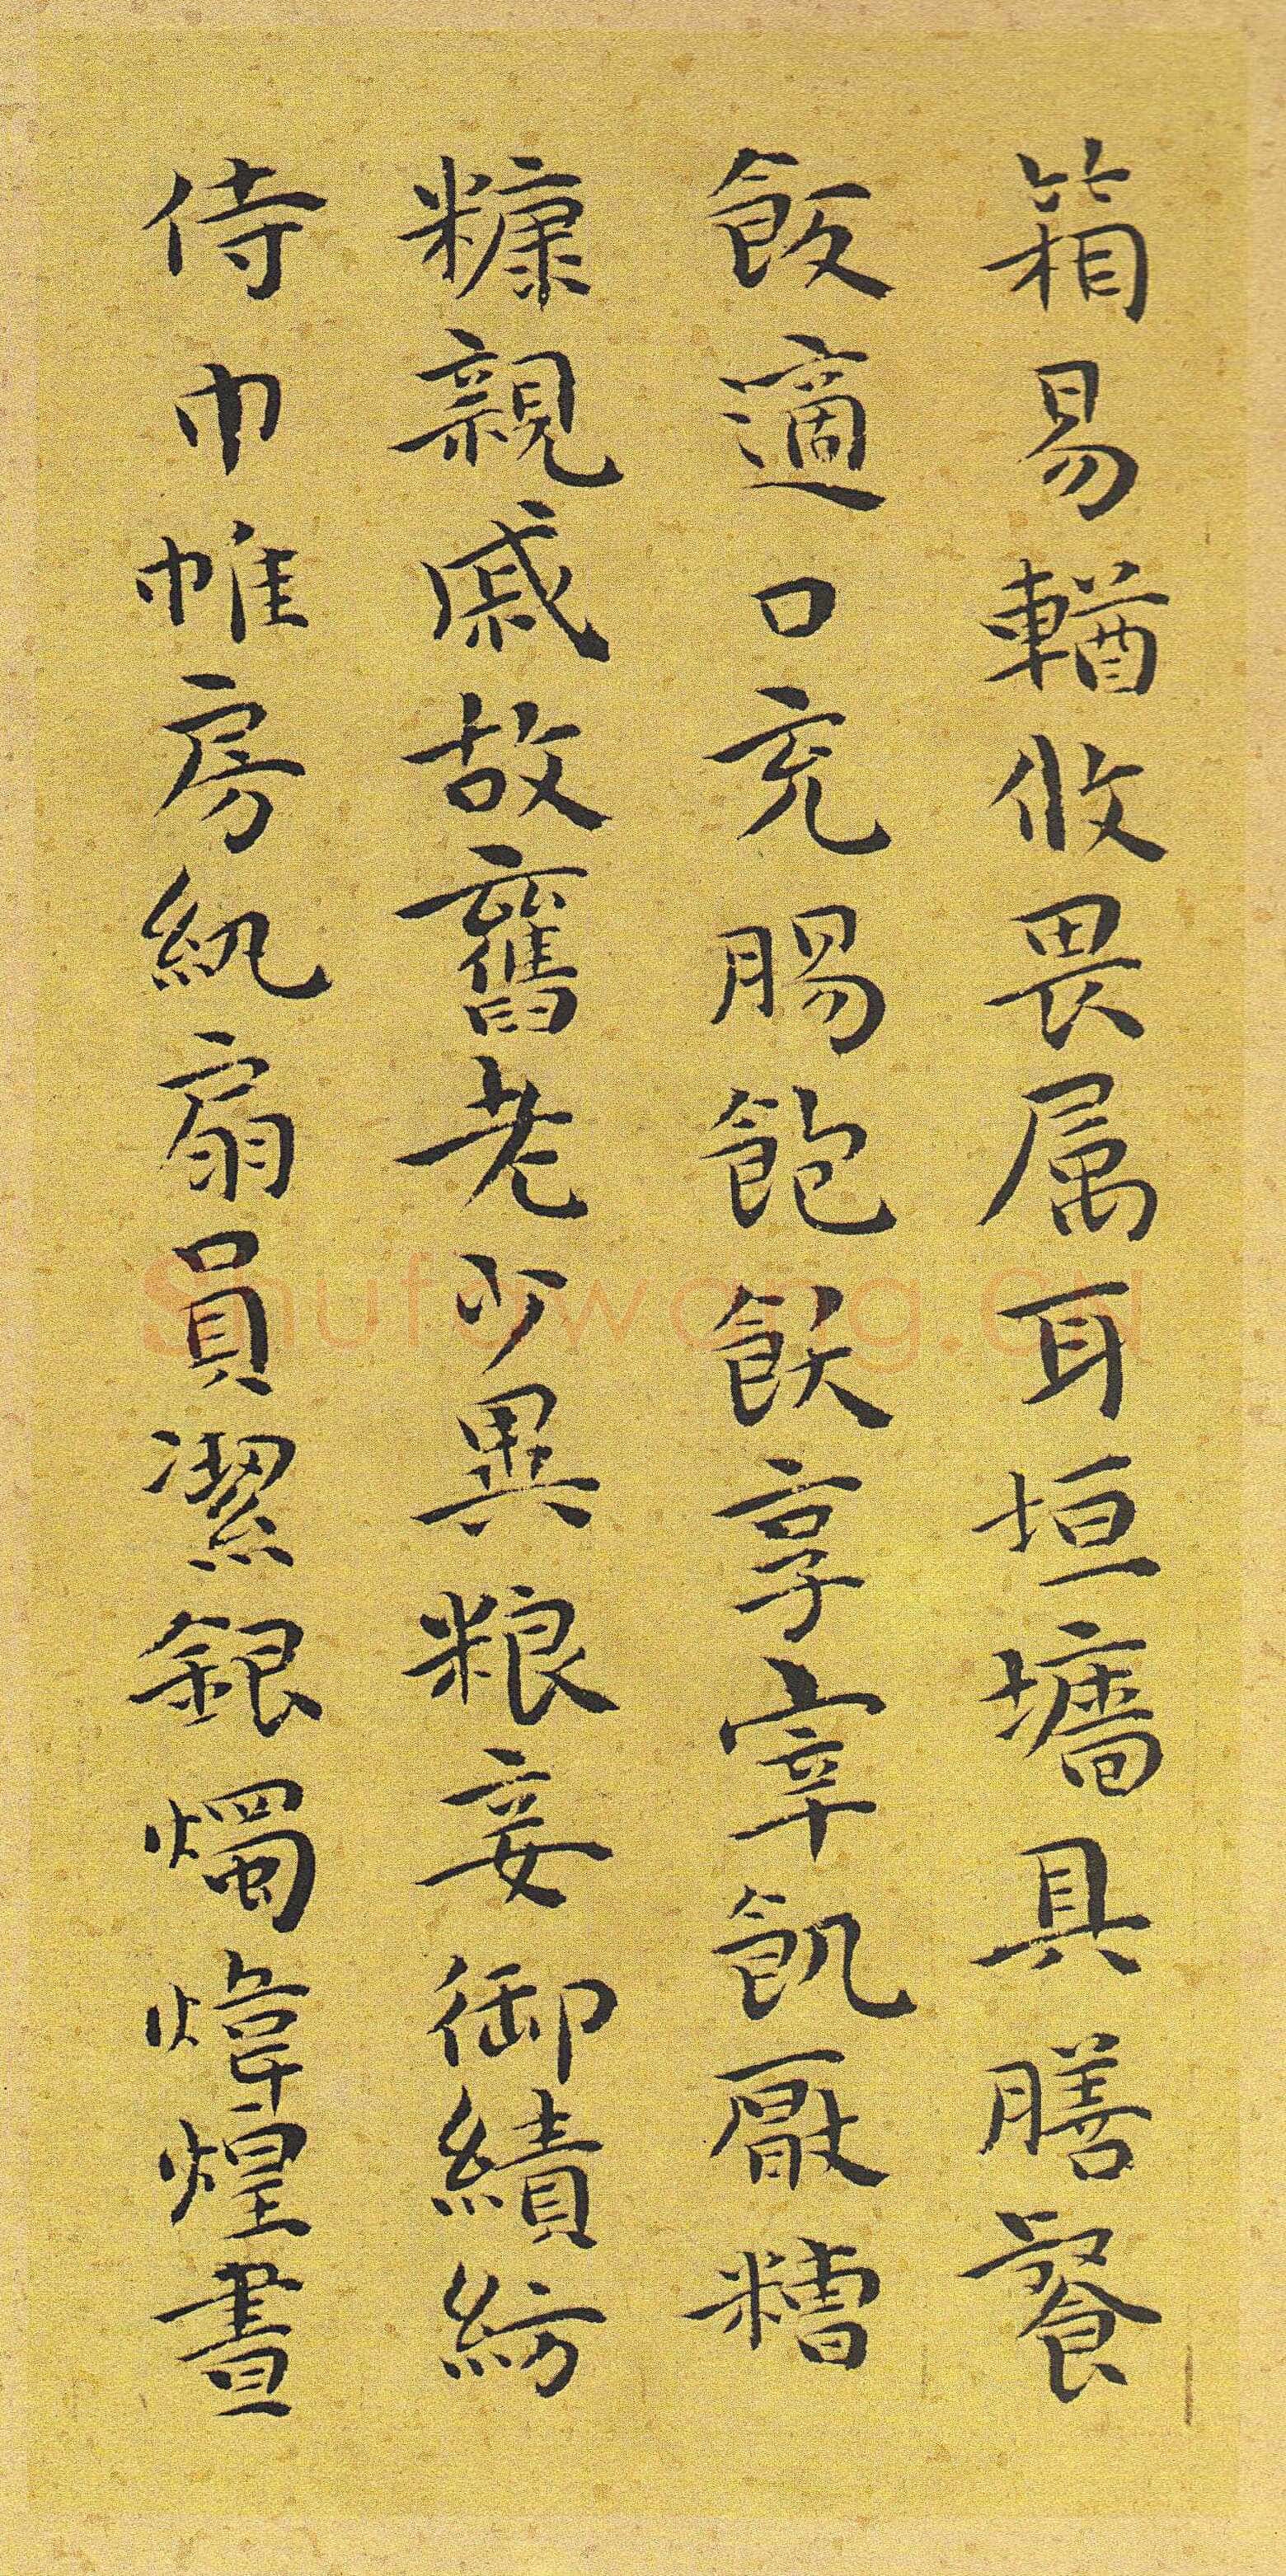 箱易輶攸畏属耳垣墻具膳飱
飯適口充腸飽飫享宰飢厭糟
糠親戚故舊老少異粮妾御績紡
侍巾帷房紈扇員潔銀燭煒煌晝
Shufawang.cn